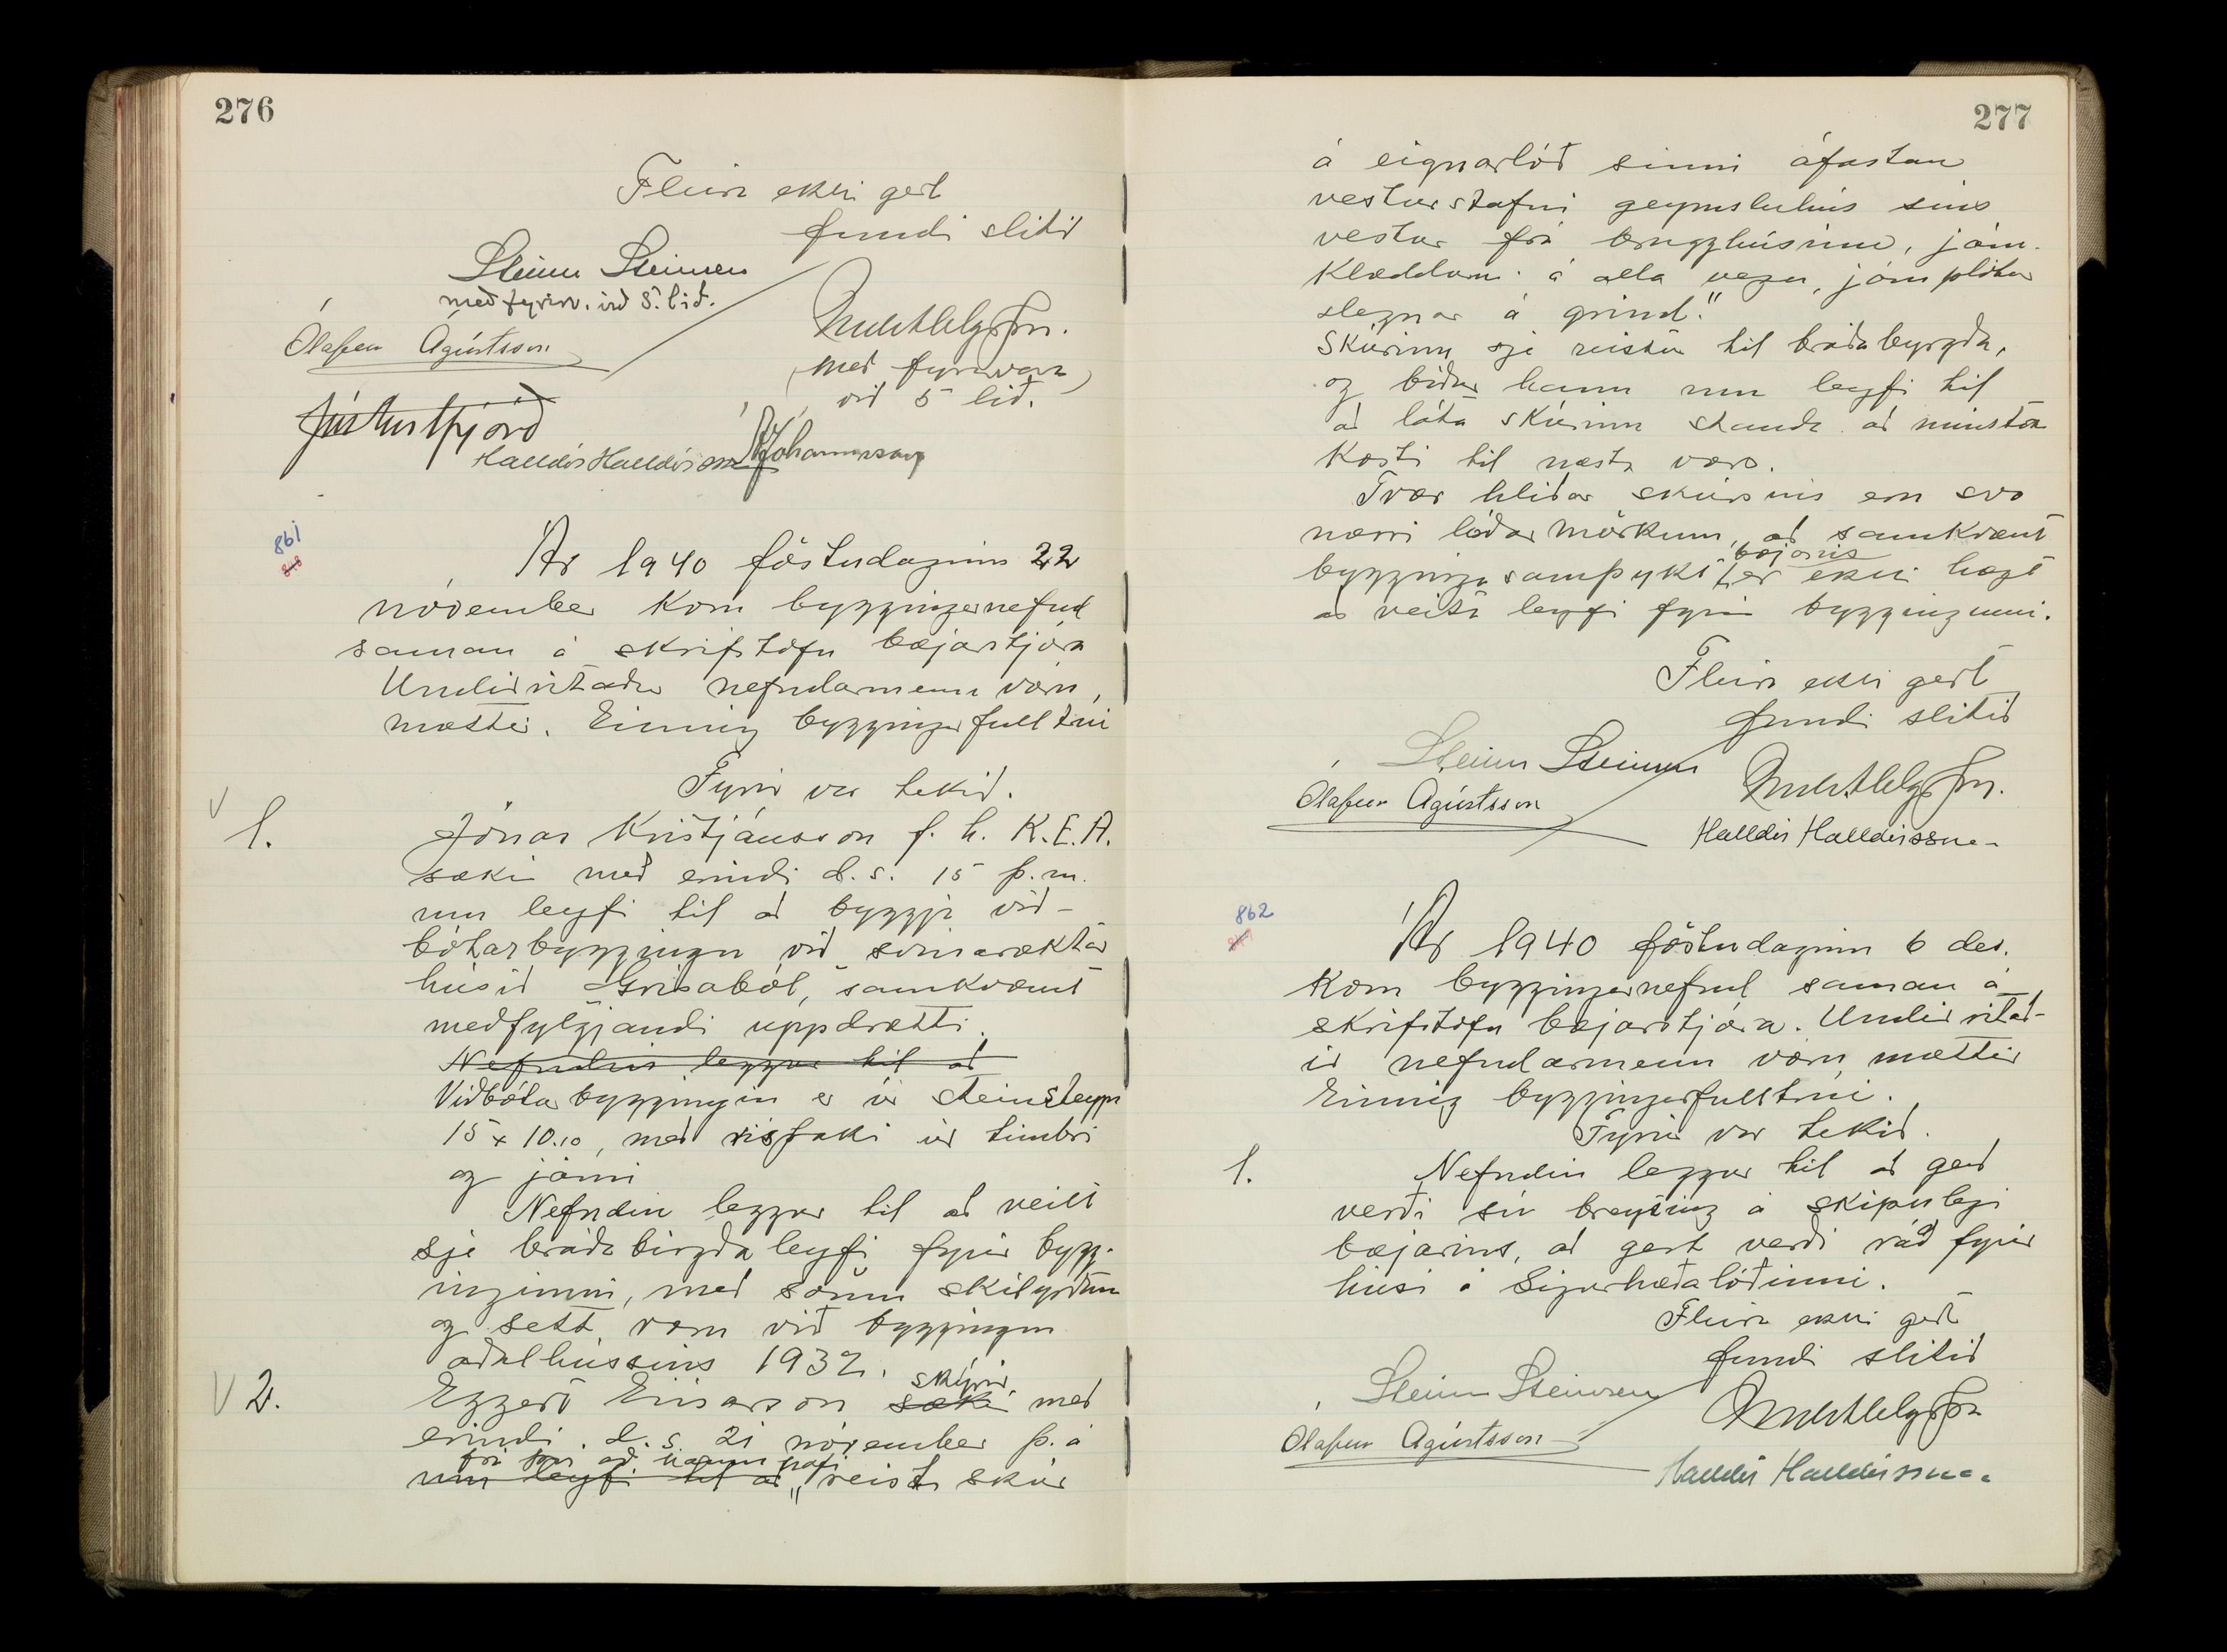 276
Fleira ekki gert
fundi slitið
Steinn Steinsen
með fyrirv. við 5. lið.
Ólafur Ágústsson
(með fyrirvara
við 5 lið.)
Halldór Halldórsson
Jóhannesson
861
Ár 1940 föstudaginn 22
nóvember kom bygginganefnd
saman á skrifstofu bæjarstjóra
Undirritaðir nefndarmenn voru
mættir. Einnig byggingafulltrúi
Fyrir var tekið.
1. Jónas Kristjánsson f. h. K.E.A.
sækir með erindi d.s. 15 þ.m.
um leyfi til að byggja við-
bótarbyggingu við svínaræktar
húsið Grísaból, samkvæmt
meðfylgjandi uppdrætti.
Nefndin leggur til að
Viðbótarbyggingin er úr steinsteypu
15 x 10.10, með risþaki úr timbri
og járni
Nefndin leggur til að veitt
sje bráðabirgðaleyfi fyrir bygg-
ingunni, með sömu skilyrðum
og sett voru við byggingu
aðalhússins 1932.
V 2. Eggert Einarsson sækir skýrir með
erindi d.s. 21 nóvember þ.á
frá því að hann hafi
um leyfi til að "reist skúr
277
á eignarlóð sinni áfastan
vesturstafni geymsluhús síns
vestur frá brugghúsinu, járn-
klæddum á alla vegu, járnplötur
slegnar á grind."
Skúrinn sje reistur til bráðabyrgða,
og biður hann um leyfi til
að láta skúrinn standa að minsta
kosti til næsta vors.
Tvær hliðar skúrsins eru svo
nærri lóðarmörkum, að samkvæmt
bæjarins
byggingasamþykt er ekki hægt
að veita leyfi fyrir byggingunni.
Fleira ekki gert
fundi slitið
Steinn Steinsen
Ólafur Ágústsson
Halldór Halldórsson
862
Ár 1940 föstudaginn 6 des.
kom bygginganefnd saman á
skrifstofu bæjarstjóra. Undirritað-
ir nefndarmenn voru mættir
Einnig byggingafulltrúi.
Fyrir var tekið.
1. Nefndin leggur til að gerð
verði sú breyting á skipulagi
bæjarins, að gert verði ráð fyrir
húsi á Sigurhæðalóðinni.
Fleira ekki gert
fundi slitið
Steinn Steinsen
Ólafur Ágústsson
Halldór Halldórsson